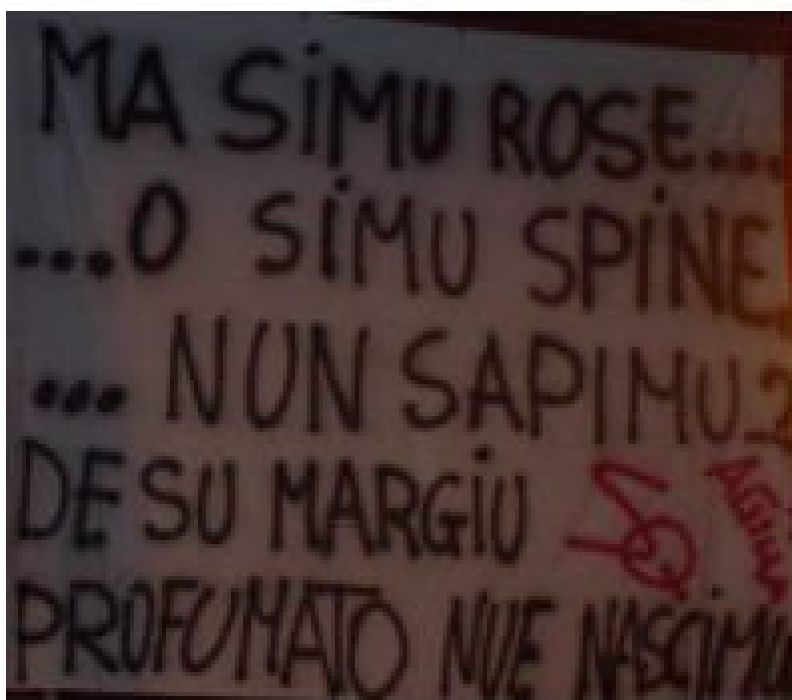 MA SiMU ROSE...
...O SiMU SPiNE
... NUN SAPIMU?
DE SU MARGiU
PROFUMATO NUE NASCiMU